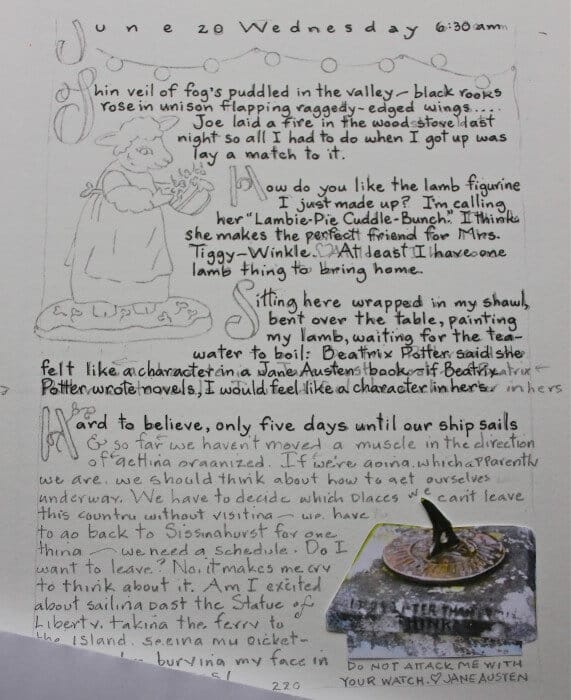 June 20 Wednesday 6:30 am
Thin veil of fog's puddled in the valley — black rooks
rose in unison flapping raggedy-edged wings....
Joe laid a fire in the wood stove last
night so all I had to do when I got up was
lay a match to it.
How do you like the lamb figurine
I just made up? I'm calling
her "Lambie-Pie Cuddle-Bunch." I think
she makes the perfect friend for Mrs.
Tiggy-Winkle. ♡ At least I have one
lamb thing to bring home.
Sitting here wrapped in my shawl,
bent over the table, painting
my lamb, waiting for the tea-
water to boil: Beatrix Potter said she
felt like a character in a Jane Austen book — if Beatrix
Potter wrote novels, I would feel like a character in hers. in hers
Hard to believe, only five days until our ship sails
& so far we haven't moved a muscle in the direction
of getting organized. If we're going, which apparently
we are, we should think about how to get ourselves
underway. We have to decide which places we can't leave
this country without visiting — we have
to go back to Sissinghurst for one
thing — we need a schedule. Do I
want to leave? No, it makes me cry
to think about it. Am I excited
about sailing past the Statue of
Liberty, taking the ferry to
the Island, seeing my picket-
burying my face in
IT IS LATER THAN
THINK
DO NOT ATTACK ME WITH
YOUR WATCH. ♡ JANE AUSTEN
220